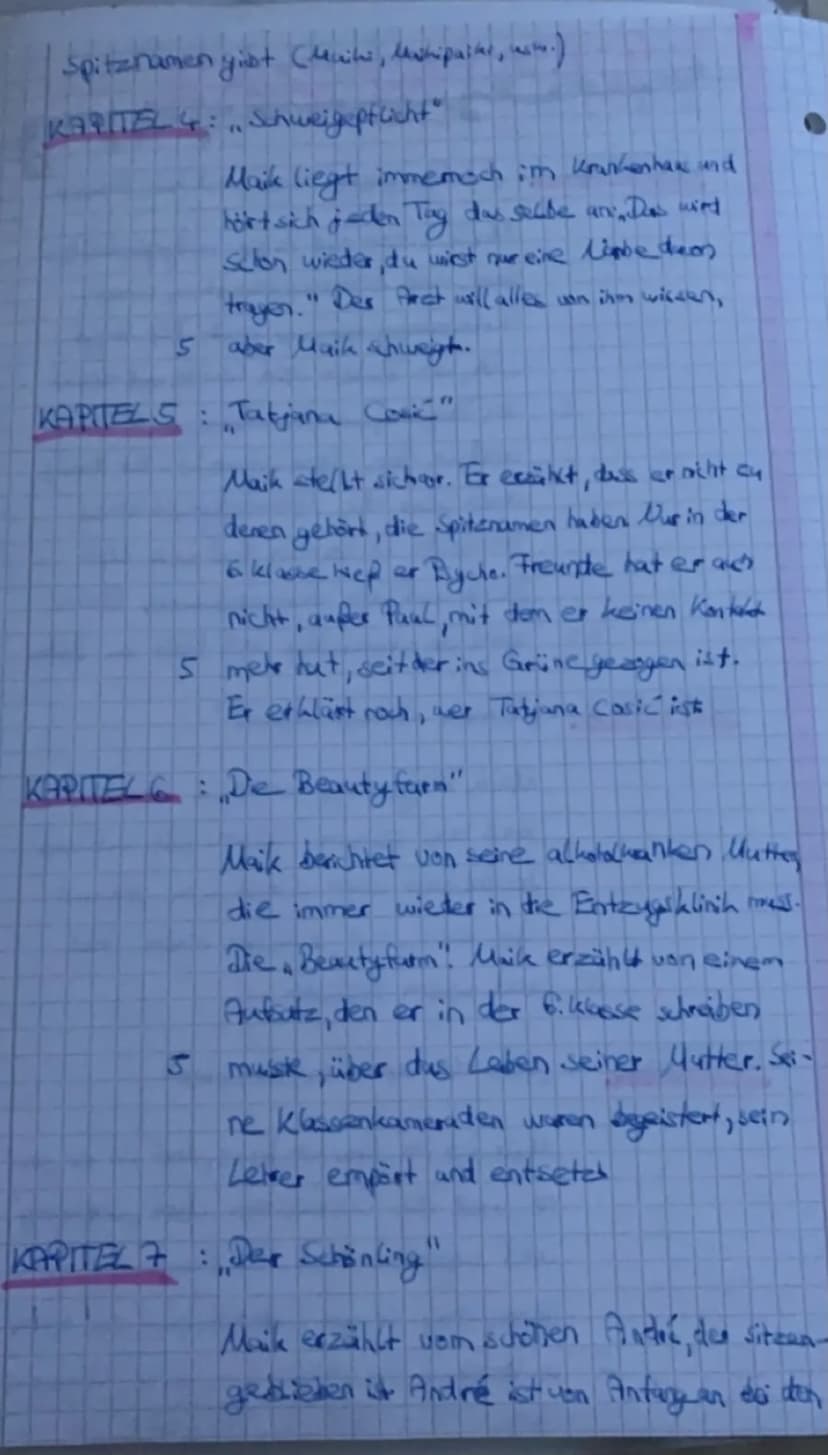 Spitznamen gibt (Maiki, usw.)
KAPITEL 4: „Schweigepflicht"
Maik liegt immernoch im Krankenhaus und
hört sich jeden Tag das selbe an: „Das wird
schon wieder, du wirst nur eine Narbe davon
tragen." Der Arzt will alles von ihm wissen,
5 aber Maik schweigt.
KAPITEL 5 : „Tatjana Cosic"
Maik stellt sich vor. Er erzählt, dass er nicht zu
denen gehört, die Spitznamen haben Nur in der
6. Klasse hieß er Psycho. Freunde hat er auch
nicht, außer Paul, mit dem er keinen Kontakt
5 mehr hat, seit der ins Grüne gezogen ist.
Er erklärt noch, wer Tatjana Cosic ist
KAPITEL 6 : „De Beautyfarm"
Maik berichtet von seine alkoholkranken Mutter,
die immer wieder in die Entzugsklinik muss.
Die „Beautyfarm". Maik erzählt von einem
Aufsatz, den er in der 6. Klasse schreiben
5 musste, über das Leben seiner Mutter. Sei-
ne Klassenkameraden waren begeistert, sein
Lehrer empört und entsetzt
KAPITEL 7 : „Der Schönling"
Maik erzählt vom schönen André, der sitzen-
geblieben ist André ist von Anfang an bei den